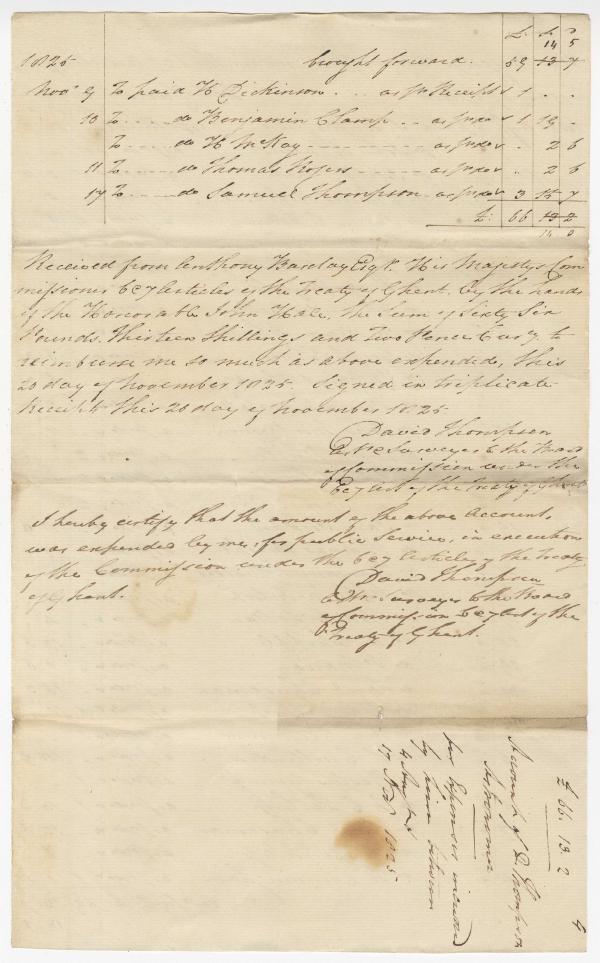 £. s. D
14 5
1825 brought forward. 59 13 7
Novr 9 To paid H Dickinson . . . as pr Receipt 1 . .
10 To .... do Benjamin Clamp . . as pr do 1 19 .
To .... do H McKay ........ as pr do . 2 6
11 To .... do Thomas Rogers .... as pr do . 2 6
17 To .... do Samuel Thompson as pr do 3 15 7
£. 66 13 2
14 0
Received from Anthony Barclay Esqr. His Majestys Com
missioner 6 & 7 Articles of the Treaty of Ghent. by the hands
of the Honorable John Hale, the Sum of Sixty Six
Pounds. Thirteen Shillings and Two Pence Curcy. to
reimburse me so much as above expended, this
20 day of November 1825. Signed in triplicate
Receipts this 20 day of November 1825
David Thompson
Astr & Surveyor to the Board
of Commission under the
6 & 7 Art of the Treaty of Ghent
I hereby certify that the amount of the above Account,
was expended by me, for public Service, in execution
of the Commission under the 6 & 7 Articles of the Treaty
of Ghent.
David Thompson
Astr Surveyor to the Board
of Commission 6 & 7 Art of the
Treaty of Ghent.
4
£ 66. 13. 2
Account of D. Thompson
Astronomer
for Expenses incurred
by him between
17 Novr 1825